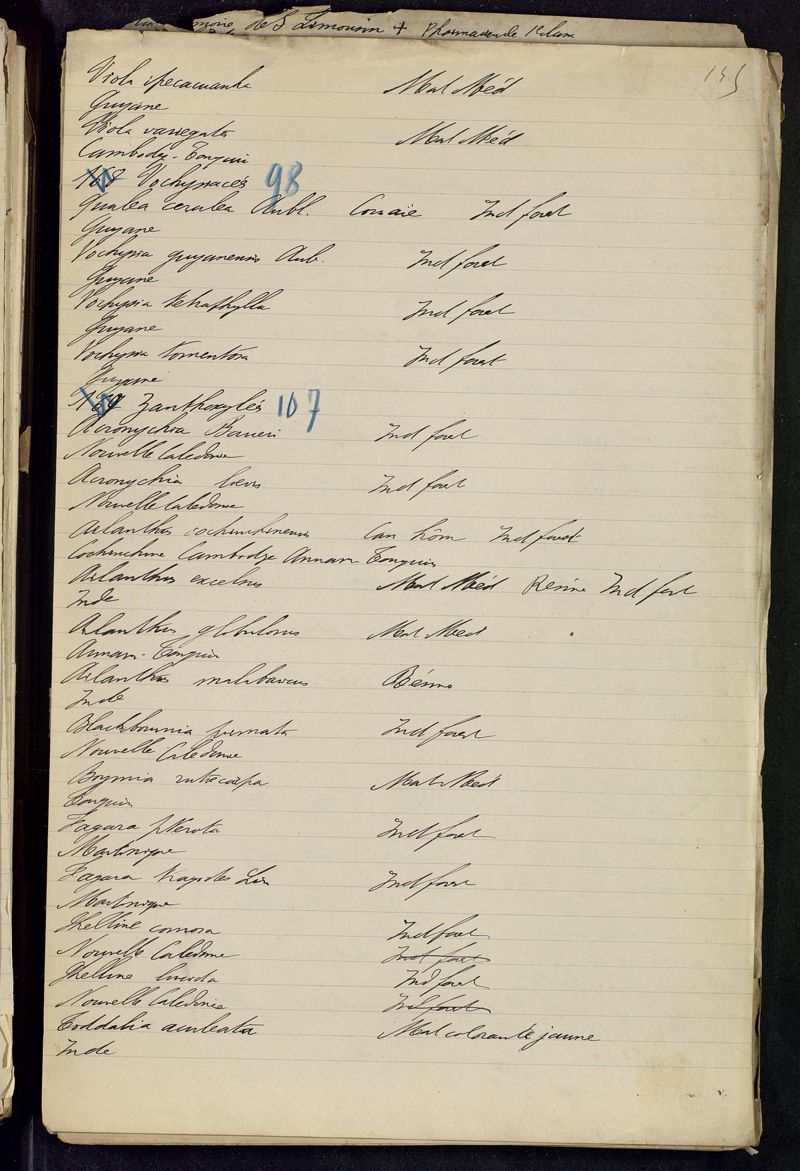 de S Limousin + Pharmacie de
145
Viola ipecacuanha Mat Méd
Guyane
Viola variegata Mat Méd
Cambodge - Tonquin
Vochysiacés 98
Qualea cerulea Aubl. Couaie Ind forest
Guyane
Vochysia guyanensis Aub. Ind forest
Guyane
Vochysia tetraphylla Ind forest
Guyane
Vochysia tomentosa Ind forest
Guyane
Zanthoxylés 107
Acronychia Baueri Ind forest
Nouvelle Caledonie
Acronychia loevis Ind forest
Nouvelle Caledonie
Ailanthus cochinchinensis Can hôm Ind forest
Cochinchine Cambodge Annam Tonquin
Ailanthus excelsus Mat Méd Résine Ind forest
Inde
Ailanthus globulosus Mat Med
Annam - Tonquin
Ailanthus malabaricus Résine
Inde
Blackburnia pinnata Ind forest
Nouvelle Caledonie
Boymia rutecarpa Mat Méd
Tonquin
Fagara pterota Ind forest
Martinique
Fagara tragodes Lin Ind forest
Martinique
Phelline comosa Ind forest
Nouvelle Caledonie Ind forest
Phelline lucida Ind forest
Nouvelle Caledonie Ind forest
Toddalia aculeata Mat colorante jaune
Inde